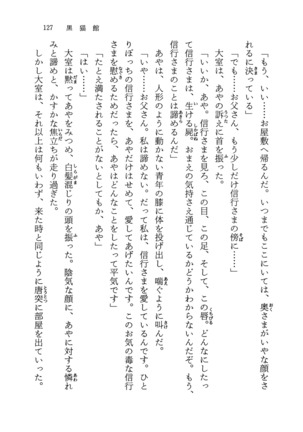 127　黒猫館
「もう、いい……。お屋敷へ帰るんだ。いつまでもここにいては、奥さまがいやな顔をさ
れるに決っている」
「でも……お父さん、もう少しだけ信行さまの傍に……」
大室は、あやの訴えに首を振った。
「いいか、あや。信行さまを見ろ、この目、この足、そして、この唇。どれをとったっ
て信行さまは、生ける屍、おまえの気持さえ通じているかどうかわからないんだぞ。もう、
信行さまのことは諦めるんだ」
あやは、人形のように動かない青年の膝に体を投げ出し、喘ぐように叫んだ。
「いや……お父さん。私は諦めない。だって私は、信行さまを愛しているんです。ひと
りぼっちの信行さまを、あやだけはせめて、愛してあげたいんです。このお気の毒な信行
さまを慰めるためだったら、あやはどんなことをしたって平気です」
「たとえ満たされることがないとしてもか、あや」
「はい……」
大室は黙ってあやをみつめ、白髪混じりの頭を振った。陰気な顔に、あやに対する憐れ
みと諦めと、かすかな焦立ちが走り過ぎた。
しかし大室は、それ以上は何もいわず、来た時と同じように唐突に部屋を出ていった。